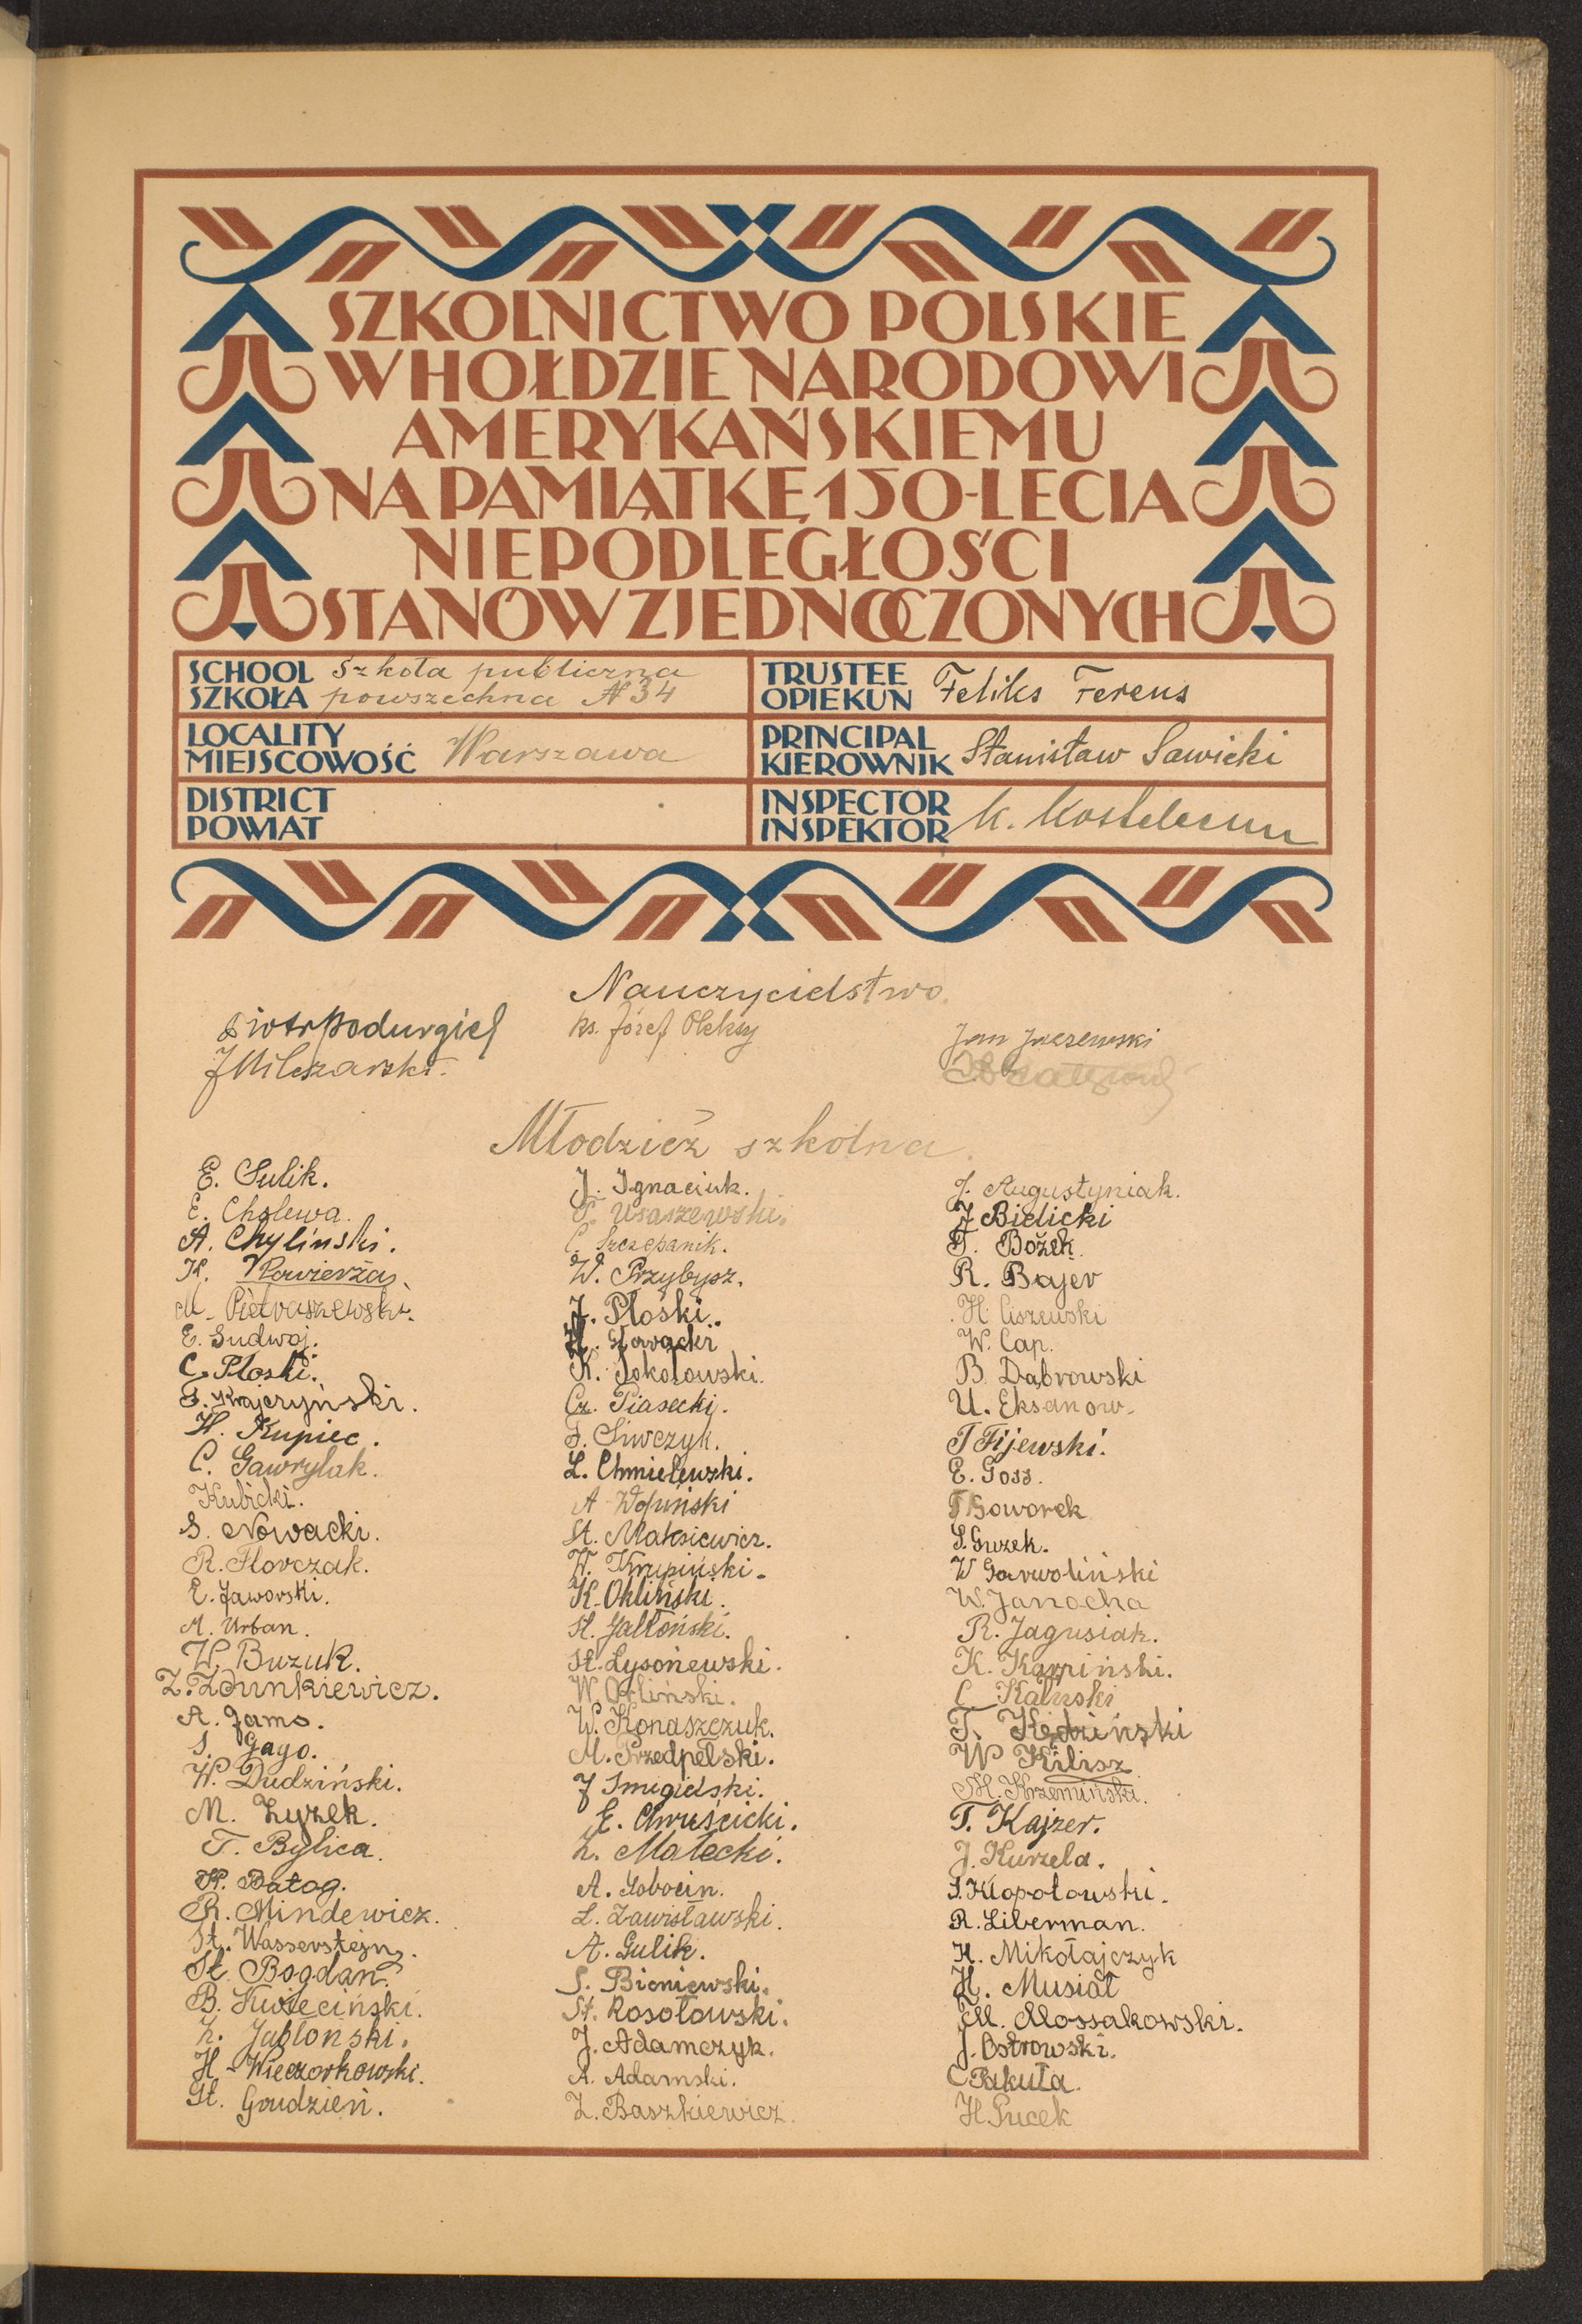 SZKOLNICTWO POLSKIE
W HOŁDZIE NARODOWI
AMERYKAŃSKIEMU
NA PAMIĄTKĘ 150-LECIA
NIEPODLEGŁOŚCI
STANÓW ZJEDNOCZONYCH
SCHOOL Szkoła publiczna
SZKOŁA powszechna № 34
TRUSTEE
OPIEKUN Feliks Ferens
LOCALITY
MIEJSCOWOŚĆ Warszawa
PRINCIPAL
KIEROWNIK Stanisław Sawicki
DISTRICT
POWIAT
INSPECTOR
INSPEKTOR K.
Nauczycielstwo.
Piotr Podurgiel
J Milczarski.
ks. Józef Oleksy
Jan Jaczewski
Młodzież szkolna.
E. Sulik.
E. Cholewa.
A. Chyliński.
K. Powierża.
M. Pietraszewski.
E. Sudwoj.
C. Płoski.
F. Krajczyński.
H. Kupiec.
C. Gawrylak.
Kubicki.
S. Nowacki.
R. Florczak.
E. Jaworski.
M. Urban.
W. Buzuk.
Z. Zdunkiewicz.
A. Jams.
S. Gago.
W. Dudziński.
M. Zyzek.
T. Bylica.
H. Batog.
R. Mindewicz.
St. Wasserstejn.
St. Bogdan.
B. Kwieciński.
Z. Jabłoński.
H. Wieczorkowski.
St. Grudzień.
J. Ignaciuk.
S. Usaszewski.
C. Szczepanik.
W. Przybysz.
J. Płoski.
H. Nawacki
K. Sokołowski.
Cz. Piasecki.
F. Siwczyk.
L. Chmielewski.
A Wopiński
St. Maksiewicz.
W. Krupiński.
K. Okliński.
St. Jabłoński.
St. Łysoniewski.
W. Orliński.
W. Konaszczuk.
M. Przedpełski.
J Smigielski.
E. Chruścicki.
Z. Małecki.
A. Sobocin.
L. Zawisławski.
A. Gulik.
S. Bieniewski.
St. Rosołowski.
J. Adamczyk.
A. Adamski.
Z. Baszkiewicz.
J. Augustyniak.
J Bielicki
T. Bożek.
R. Bajer
H. Ciszewski
W. Cap.
B. Dąbrowski
U. Eksanow.
T Fijewski.
E. Goss.
T Goworek
S. Guzek.
W Garwoliński
W. Janocha
R. Jagusiak.
K. Karpiński.
C. Kaliński
T. Kędzińśki
W Kilisz
M. Krzemiński.
T. Kajzer.
J. Kurzela.
S. Kłopotowski.
R. Liberman.
H. Mikołajczyk
H. Musiał
M. Mossakowski.
J. Ostrowski.
C Pakuła.
H Pucek